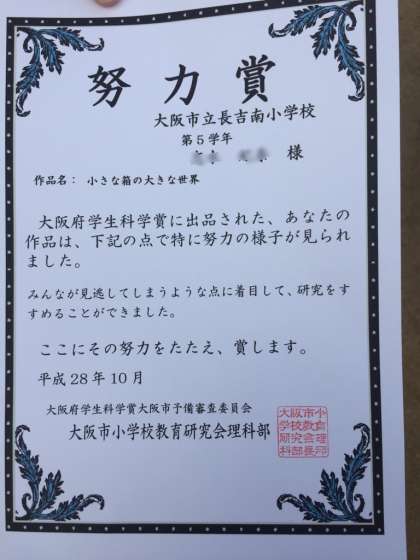 努力賞
大阪市立長吉南小学校
第５学年
様
作品名： 小さな箱の大きな世界
大阪府学生科学賞に出品された、あなたの
作品は、下記の点で特に努力の様子が見られ
ました。
みんなが見逃してしまうような点に着目して、研究をす
すめることができました。
ここにその努力をたたえ、賞します。
平成28年10月
大阪府学生科学賞大阪市予備審査委員会
大阪市小学校教育研究会理科部
大阪市小
学校教育
研究会理
科部長印